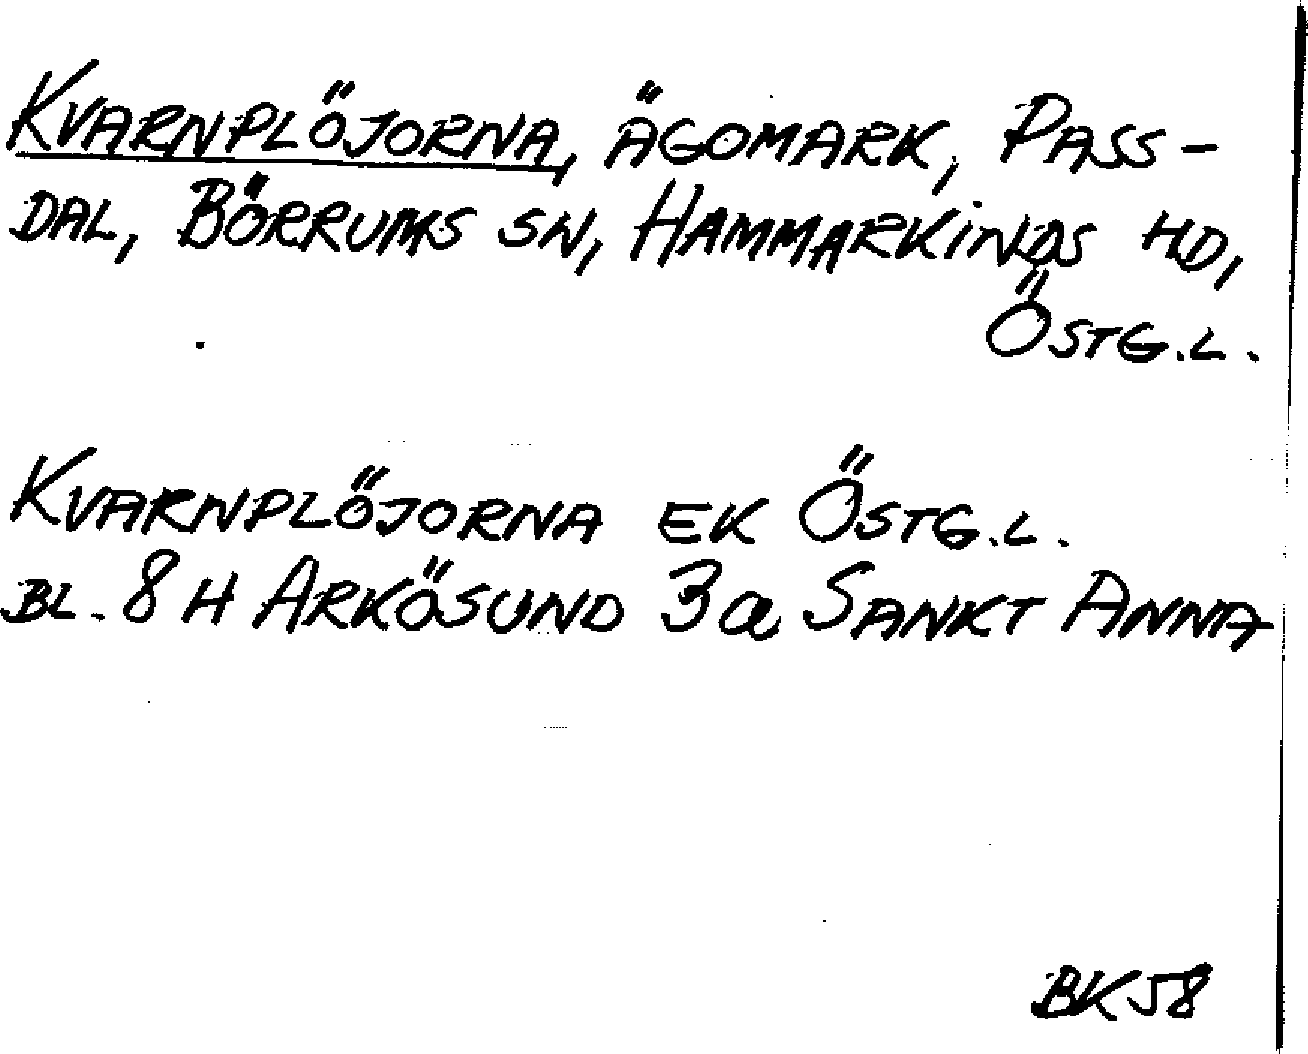 KVARNPLÖJORNA, ÄGOMARK, PASS-
DAL, BÖRRUMS SN, HAMMARKINDS HD,
ÖSTG.L.
KVARNPLÖJORNA EK ÖSTG.L.
BL. 8 H ARKÖSUND 3 a SANKT ANNA
BK 58